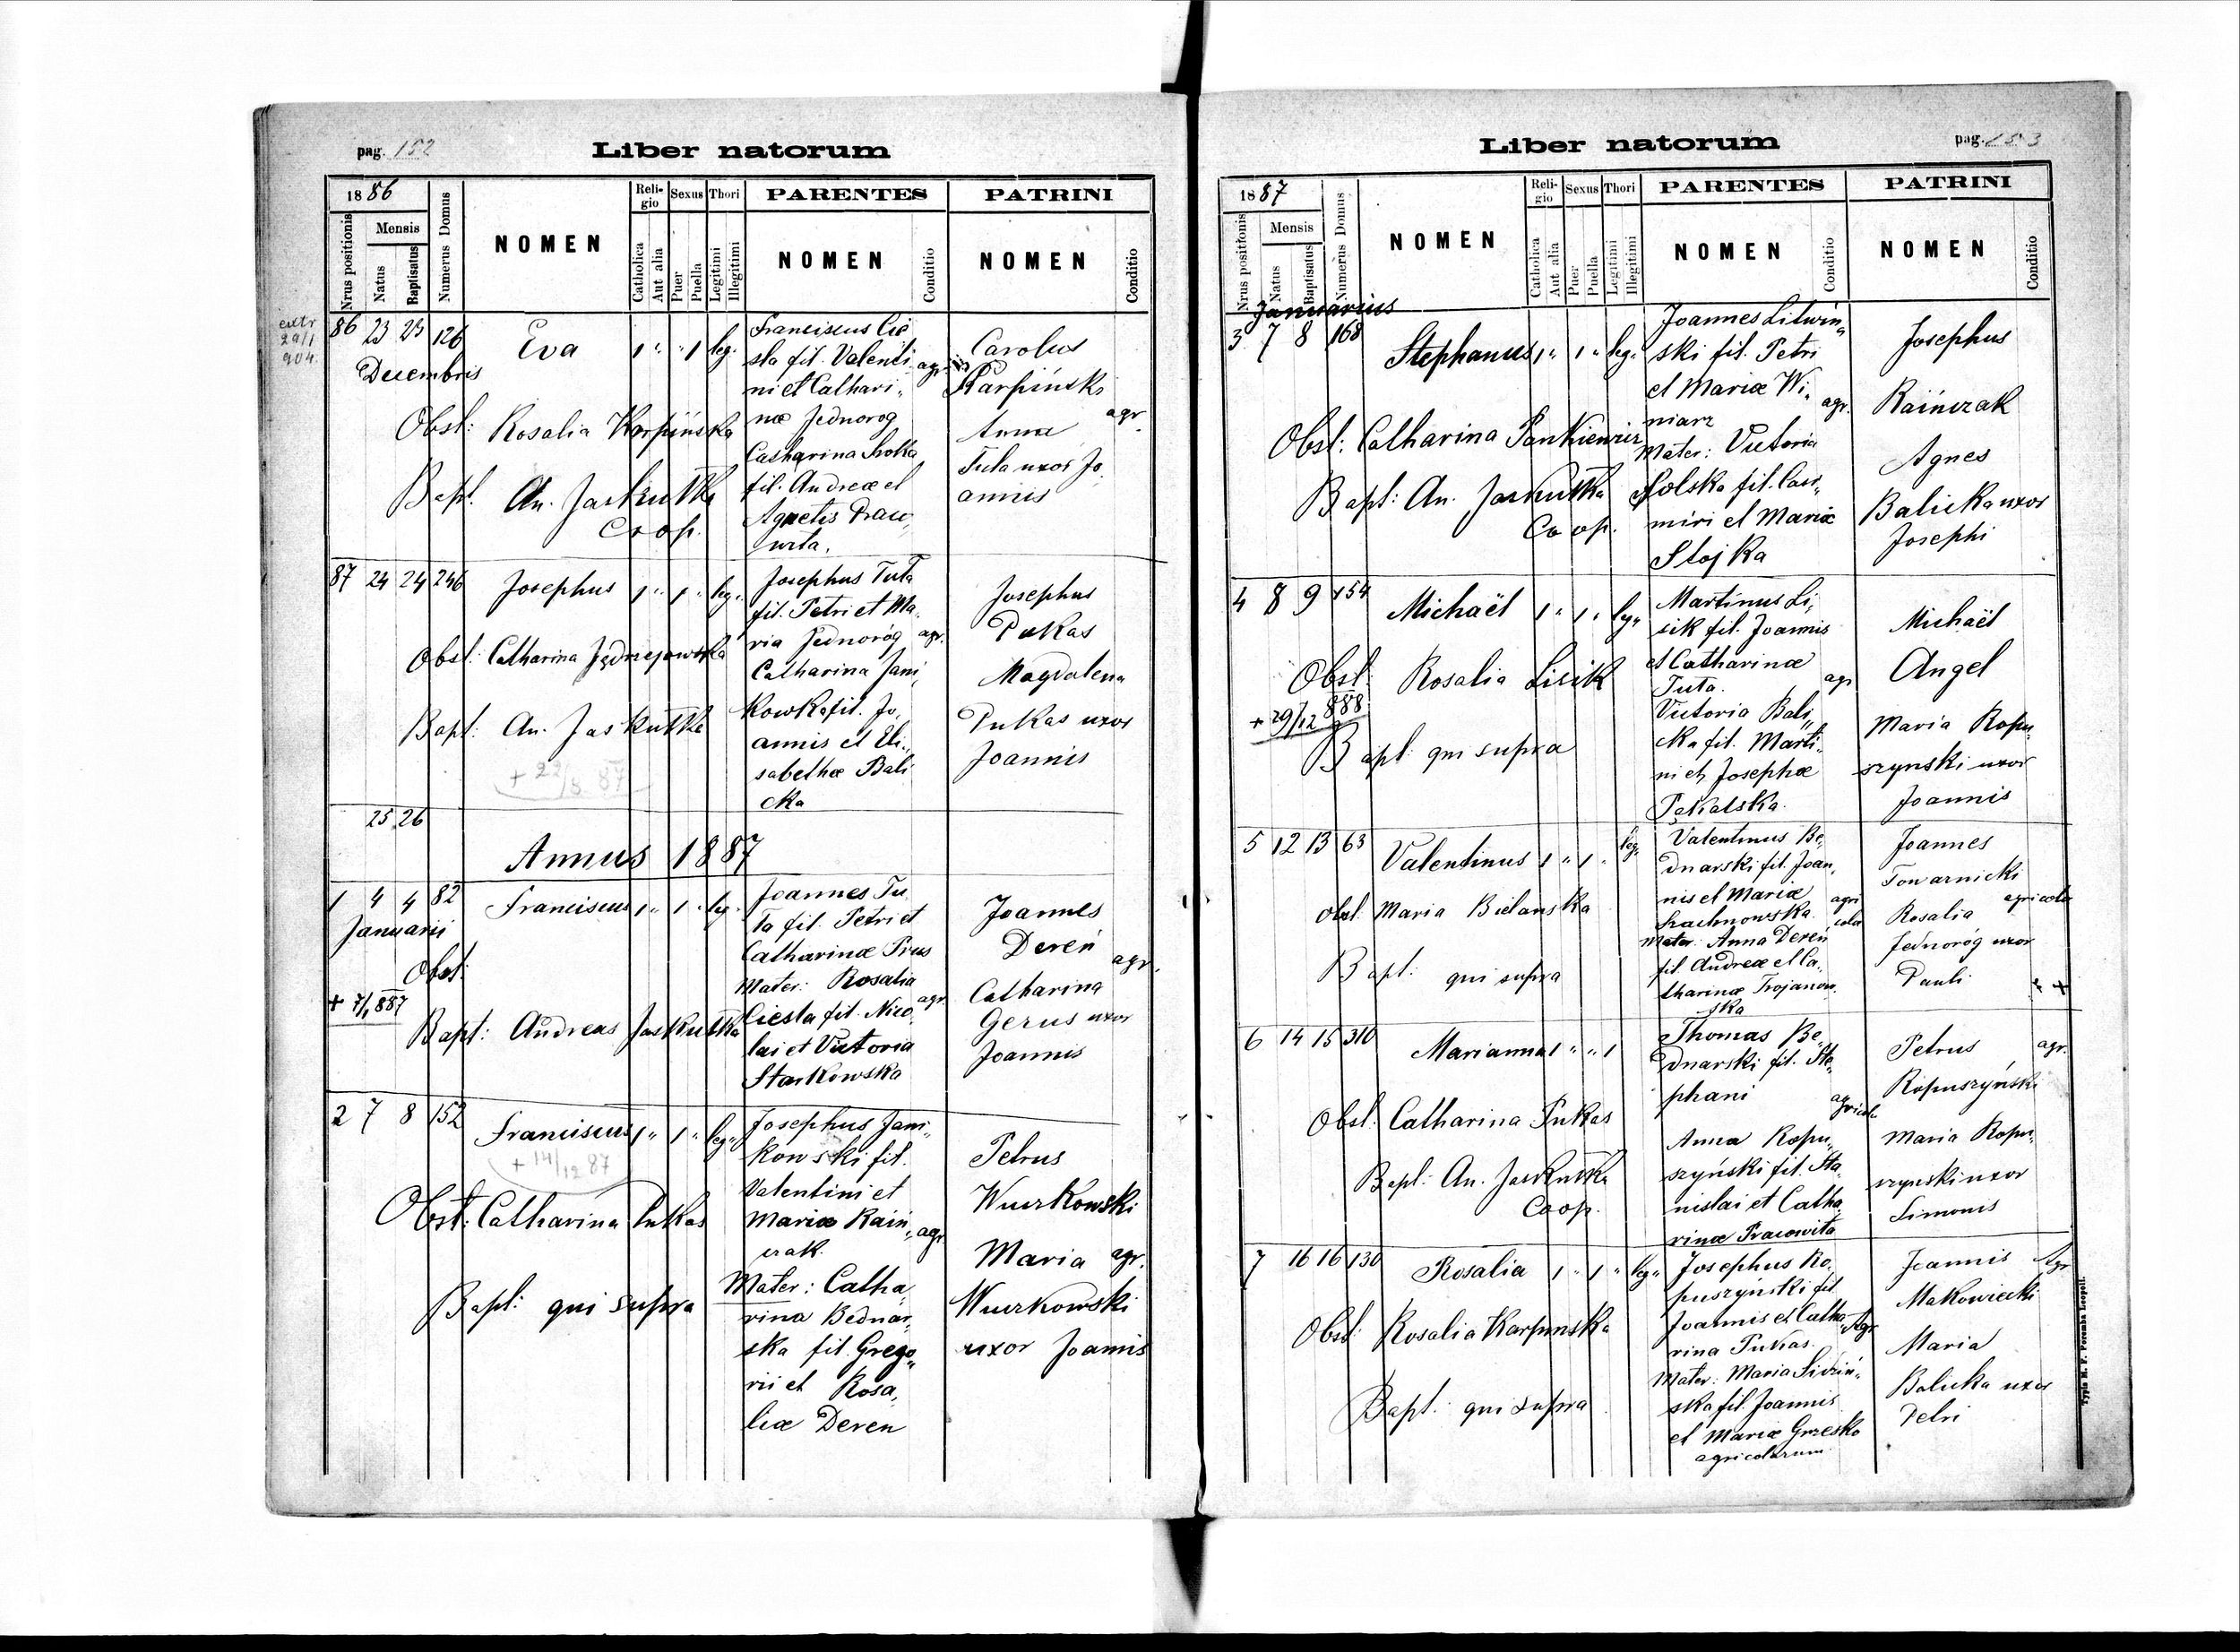 pag. 152
Liber natorum
1886
Nrus positionis
Mensis
Natus
Baptisatus
Numerus Domus
NOMEN
Religio
Catholica
Aut alia
Sexus
Puer
Puella
Thori
Legitimi
Illegitimi
PARENTES
NOMEN
Conditio
PATRINI
NOMEN
Conditio
extr
29/1
904.
86 23 25 126
Decembris
Eva
1 " " 1 leg.
Obst: Rosalia Karpińska
Bapt. An. Jaskutka
Coop.
Franciscus Cie
sla fil. Valenti
ni et Cathari„
næ Jednorog
Catharina Srotka
fil. Andreæ et
Agnetis Praco„
wita.
agr.
Carolus
Karpiński
agr.
Anna
Tuta uxor Jo„
annis
87 24 24 246
Josephus
1 " 1 " leg"
Obst: Catharina Jędrejowska
Bapt: An. Jaskutka
+ 22/3 87
Josephus Tuta
fil. Petri et Ma„
ria Jednoróg
agr.
Catharina Jani„
kowka fil. Jo„
annis et Eli„
sabethæ Bali
cka
Josephus
Pukas
Magdalena
Pukas uxor
Joannis
25 26
Annus 1887
1 4 4 82
Januarii
Franciscus
1 " 1 " leg.
Obst:
+ 7/1 887
Bapt: Andreas Jaskutka
Joannes Tu
ta fil. Petri et
Catharinæ Prus
Mater: Rosalia
Ciesla fil. Nico„
agr.
lai et Victoria
Starkowska
Joannes
Dereń
agr.
Catharina
Gerus uxor
Joannis
2 7 8 152
Franciscus
1 " 1 " leg"
+ 14/12 87
Obst: Catharina Pukas
Bapt: qui supra
Josephus Jani„
kowski fil.
Valentini et
Mariæ Rain„
agr
czak.
Mater: Catha„
rina Bednar„
ska fil. Grego„
rii et Rosa„
liæ Deren
Petrus
Wuczkowski
Maria agr.
Wuczkowski
uxor Joannis
pag. 153
Liber natorum
1887
Nrus positionis
Mensis
Natus
Baptisatus
Numerus Domus
NOMEN
Religio
Catholica
Aut alia
Sexus
Puer
Puella
Thori
Legitimi
Illegitimi
PARENTES
NOMEN
Conditio
PATRINI
NOMEN
Conditio
Januarius
3 7 8 168
Stephanus
1 " 1 " leg"
Obst: Catharina Pankiewicz
Bapt: An. Jaskutka
Coop.
Joannes Litwin„
ski fil. Petri
et Mariæ Wi„
agr.
niarz
Mater: Victoria
Solska fil. Casi„
miri et Mariæ
Stojka
Josephus
Raińczak
Agnes
Balicka uxor
Josephi
4 8 9 154
Michaël
1 " 1 " leg"
Obst: Rosalia Lisik
+ 29/12 888
Bapt: qui supra
Martinus Li„
sik fil. Joannis
et Catharinæ
Tuta.
agr
Victoria Bali„
cka fil. Marti„
ni et Josephæ
Pękalska.
Michaël
Angel
Maria Ropu„
szynski uxor
Joannis
5 12 13 63
Valentinus
1 " 1 " leg"
Obst: Maria Bielanska
Bapt: qui supra
Valentinus Be„
dnarski fil. Joan„
nis et Mariæ
agri
cola
Mater: Anna Dereń
fil. Andreæ et Ca„
tharinæ Trojanow„
ska
Joannes
Towarnicki
agricola
Rosalia
Jednoróg uxor
Pauli
6 14 15 310
Marianna
1 " " 1
Obst: Catharina Pukas
Bapt: An. Jaskutka
Coop.
Thomas Be„
dnarski fil. Ste„
phani
agricola
Anna Ropu„
szyński fil. Sta„
nislai et Catha„
rinæ Pracowita
Petrus
agr.
Ropuszyński
Maria Ropu„
szynski uxor
Simonis
7 16 16 130
Rosalia
1 " 1 " leg"
Obst: Rosalia Karpinska
Bapt: qui supra
Josephus Ro„
puszyński fil.
Joannis et Catha„
Agr
rina Pukas.
Mater: Maria Siczin„
ska fil. Joannis
et Mariæ Grzesko
agricolarum
Joannis
Agr
Makowiecki
Maria
Balicka uxor
Petri
Typis M. F. Poremba Leopoli.